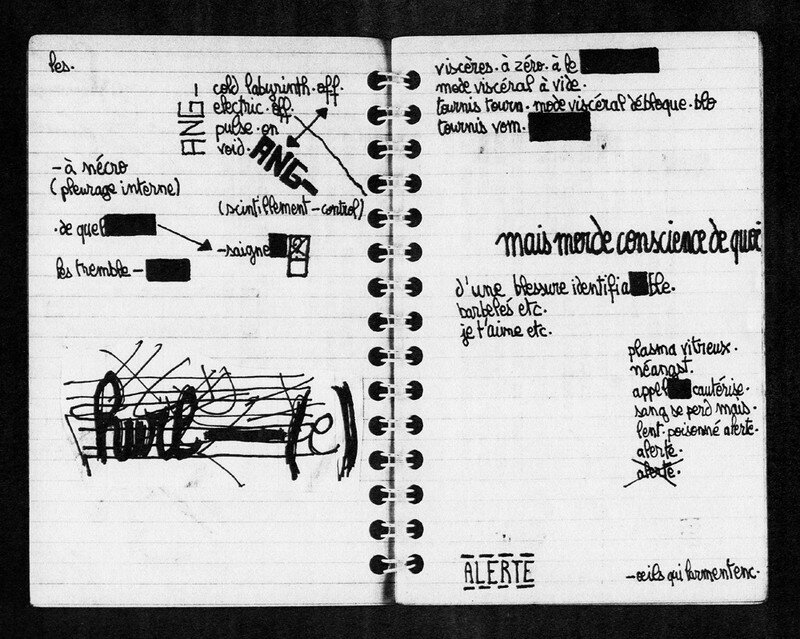 les.
cold labyrinth. off.
electric. off.
pulse. on
void.
ANG—
ANG—
– à nécro
(pleurage interne)
(scintillement–control)
. de quel
– saigne
les tremble –
hurle — (e)
viscères. à zéro. à le
mode viscéral à vide.
tournis tourn. mode viscéral débloque. blo
tournis vom.
mais merde conscience de quoi
d'une blessure identifia ble.
barbelés etc.
je t'aime etc.
plasma vitreux.
néangt.
appel cautérise.
sang se perd mais.
lent. poisonné alerte.
alerte.
alerte.
ALERTE